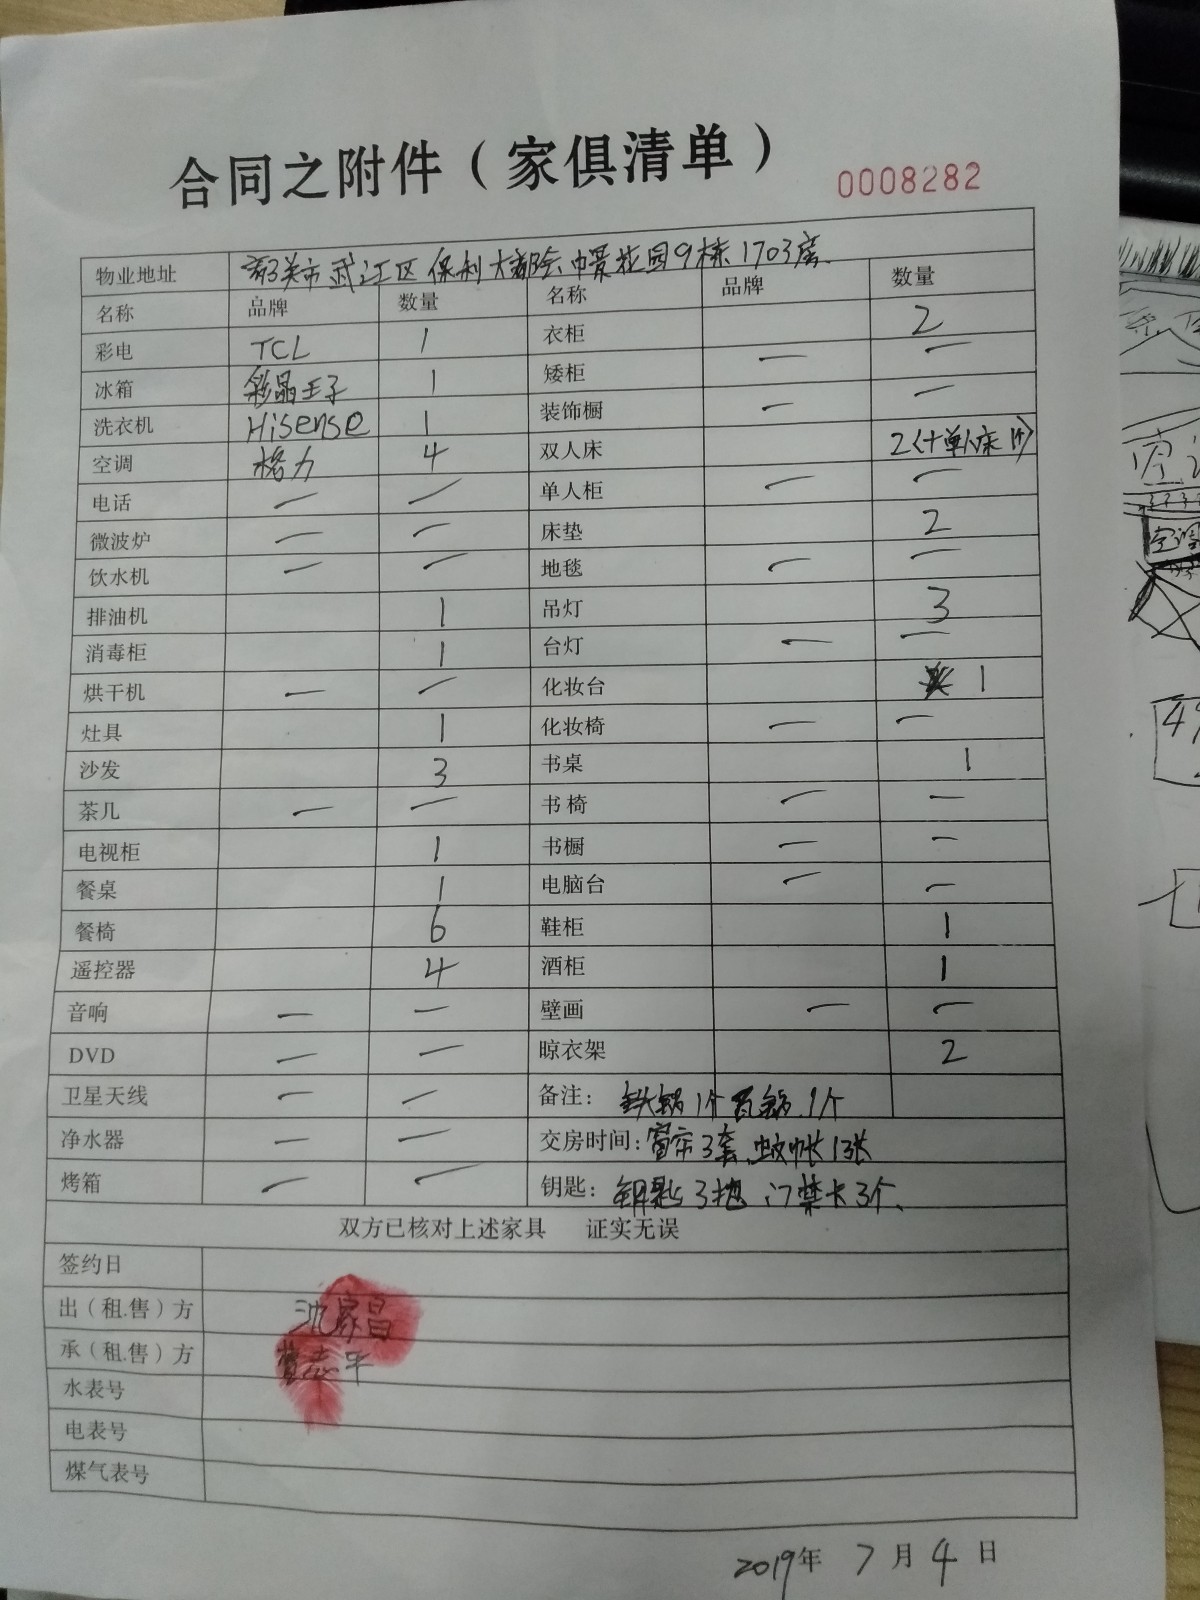 合同之附件（家俱清单）
0008282
物业地址 韶关市武江区保利大都会中景花园9栋1703房
名称 品牌 数量 名称 品牌 数量
彩电 TCL 1 衣柜 2
冰箱 彩晶王子 1 矮柜 — —
洗衣机 Hisense 1 装饰橱 — —
空调 格力 4 双人床 2(+单人床1个)
电话 — — 单人柜 — —
微波炉 — — 床垫 2
饮水机 — — 地毯 — —
排油机 1 吊灯 3
消毒柜 1 台灯 — —
烘干机 — — 化妆台 1
灶具 1 化妆椅 — —
沙发 3 书桌 1
茶几 — — 书椅 — —
电视柜 1 书橱 — —
餐桌 1 电脑台 — —
餐椅 6 鞋柜 1
遥控器 4 酒柜 1
音响 — — 壁画 — —
DVD — — 晾衣架 2
卫星天线 — — 备注： 铁锅1个 锅1个
净水器 — — 交房时间：窗帘3套、蚊帐1张
烤箱 — — 钥匙：钥匙3把 门禁卡3个、
双方已核对上述家具 证实无误
签约日
出（租.售）方 沈家昌
承（租.售）方 志平
水表号
电表号
煤气表号
2019年 7月4日